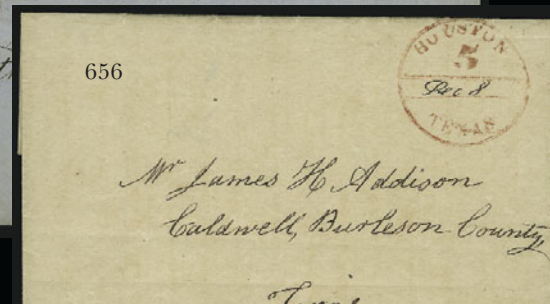 656
HOUSTON
5
Dec 8
TEXAS
Mr James H Addison
Caldwell, Burleson County
Texas